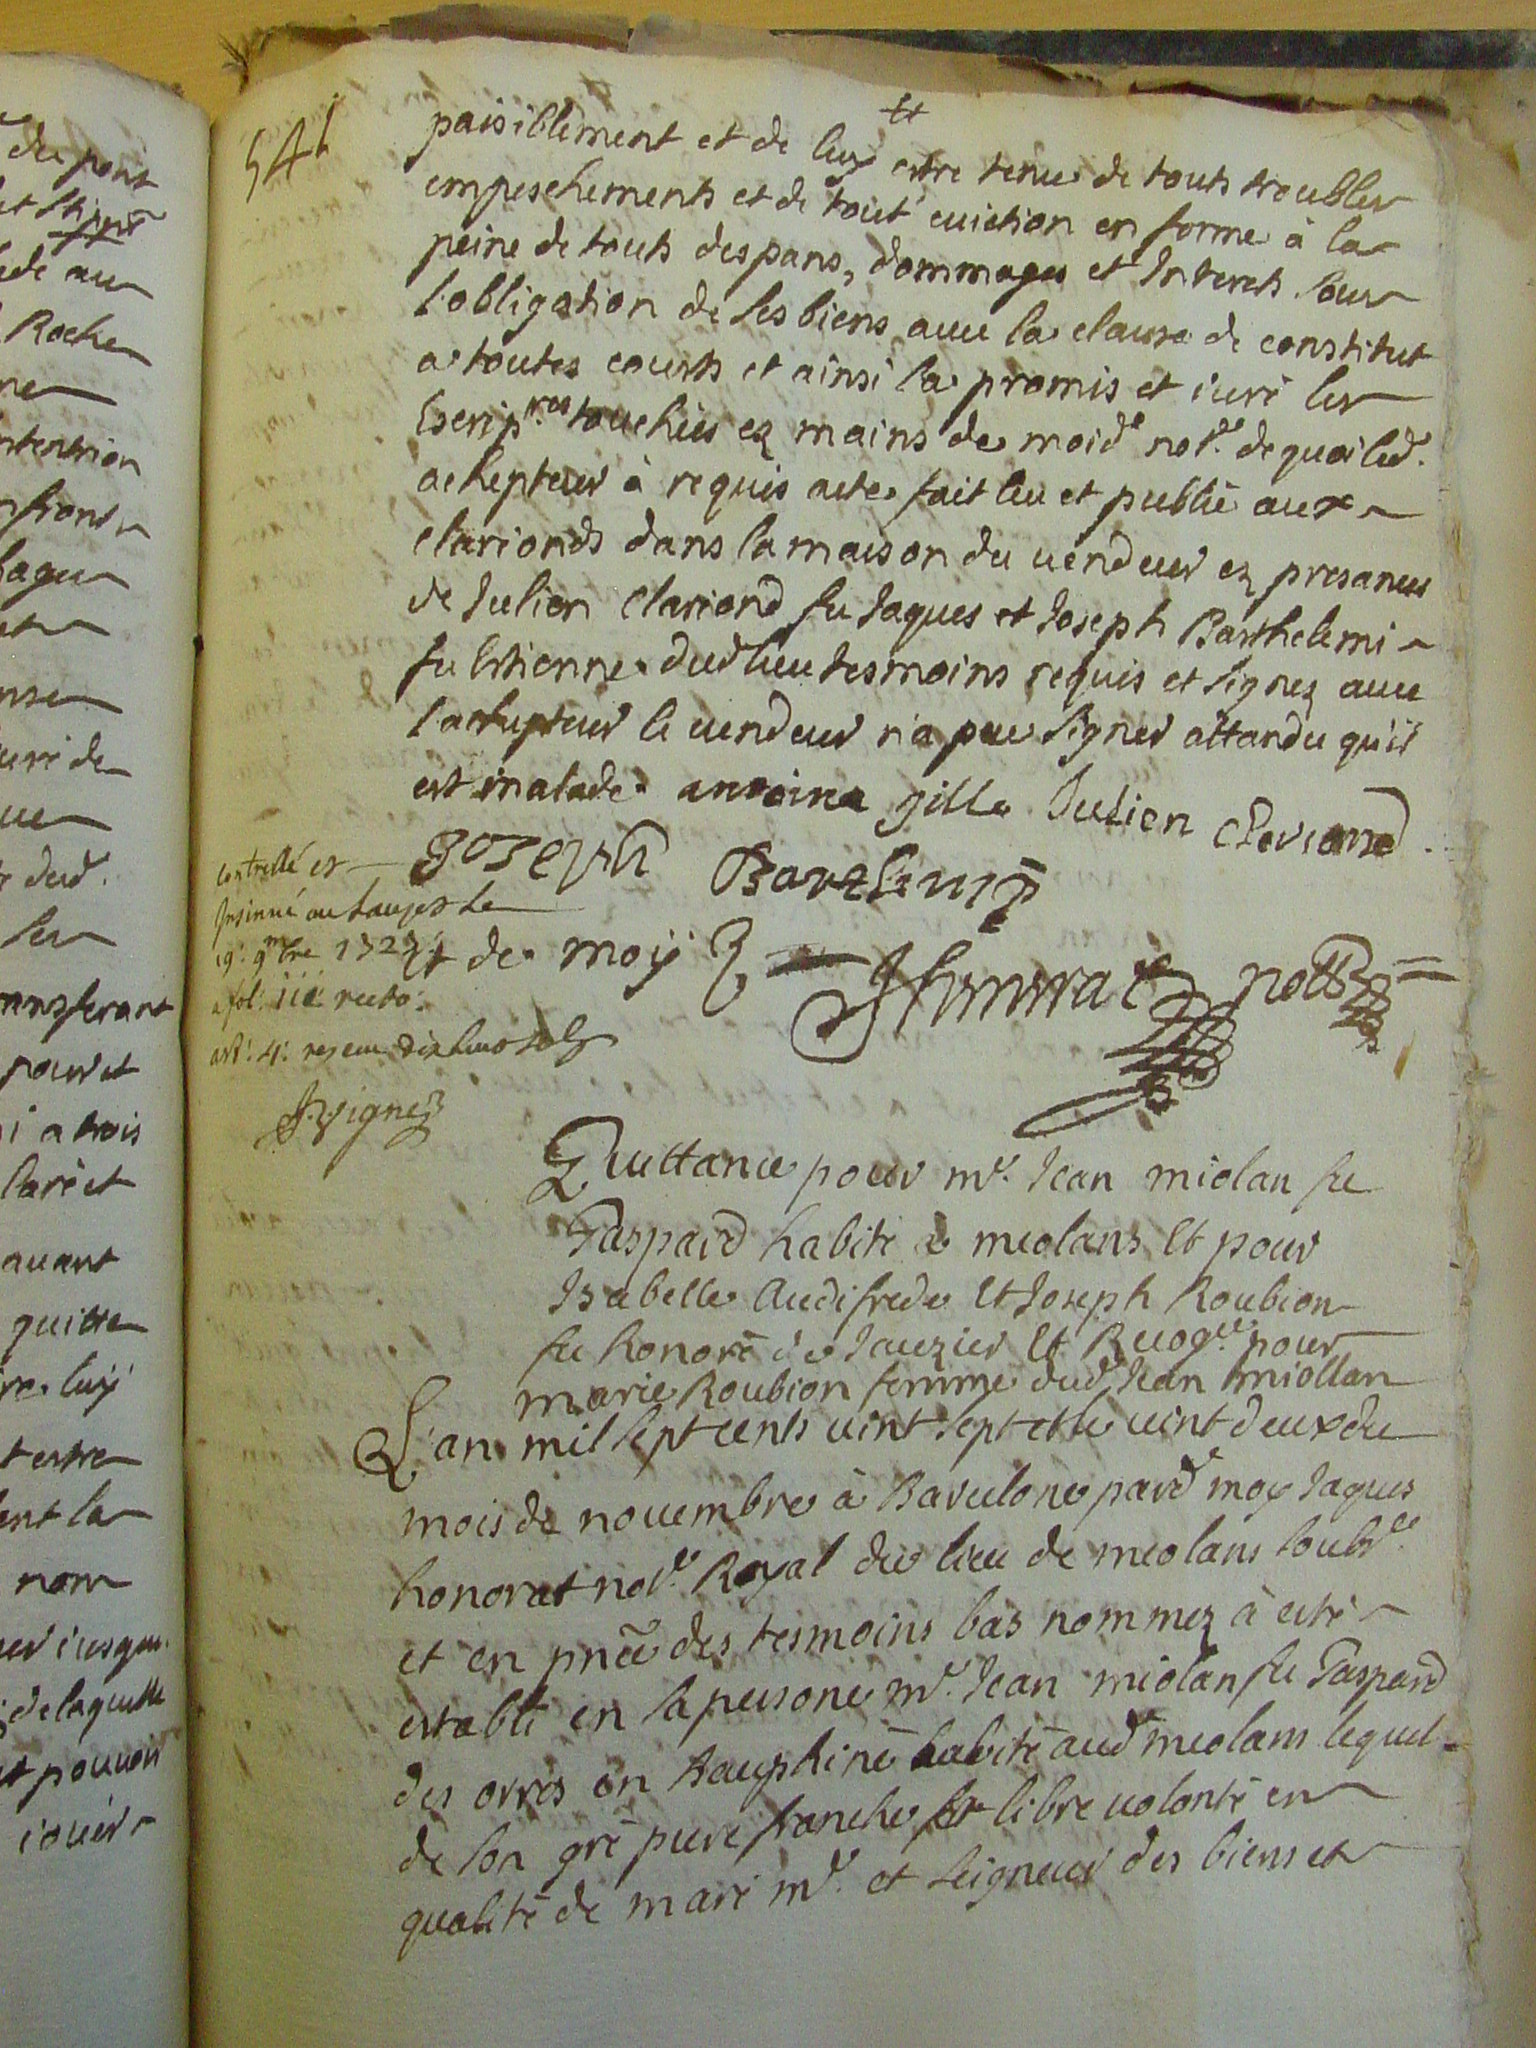 541
paisiblement et de luy estre tenu de touts troubles
empeschements et de tout euiction en forme à la
peine de touts despans, dommages et Interets sous
l'obligation de ses biens auec la clause de constitut
a toutes courts et ainsi la promis et iuré les
Escrip.res touchées ez mains de moid.e not.e de quoi led.
achepteur à requis acte fait leu et publié aux
clarionds dans la maison du uendeur ez presances
de Julien Clariond fu Jaques et Joseph Barthelemi
fu Estienne dud lieu tesmoins requis et signez auec
l'achepteur le uendeur n'a peu signer attandu qu'il
est malade antoine gille Julien clariond
Joseph Bartelemy
et de moy
not.e
controllé et
Insinué au Lauzet le
19: 9bre 1727
a fol: 111 recto:
art: 4: reseu dix huit sols
Vignes
Quittance pour m.e Jean miolan fu
Gaspard habité a meolans Et pour
Isabelle Audifrede Et Joseph Roubion
fu honoré de Jauzier Et Recog.ce pour
marie Roubion femme dud Jean miollan
L'an mil sept cents uint sept et le uint deux du
mois de nouembre à Barcelone pard moy Jaques
honorat not.e Royal du lieu de meolans soubs.é
et en pnce des tesmoins bas nommez à esté
establi en sa persone m.e Jean miolan fu Gaspard
des orres en Dauphiné habité aud meolans lequel
de son gré pure franche et libre uolonté en
qualité de mari m.e et seigneur des biens et
du pont
au
Roche
ne
ntention
et
uré de
dud.
les
ransferant
pour et
i a trois
auant
quitte
luy
t estre
ent la
nom
er iusques
de laquelle
et pouuoir
iouër